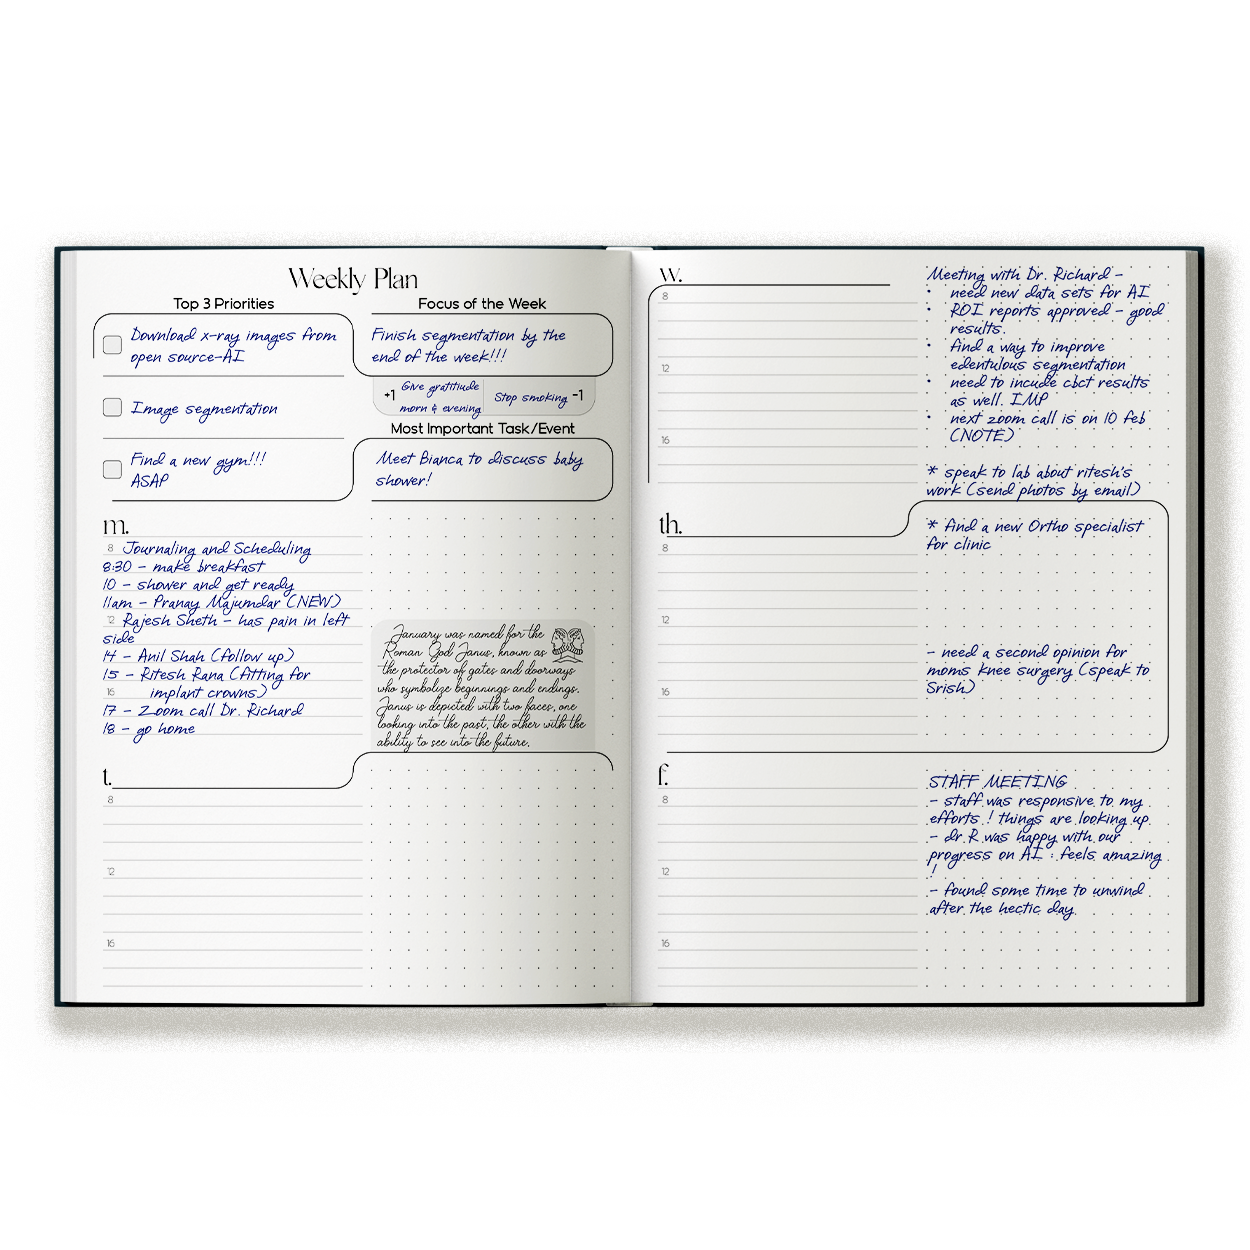 Weekly Plan
Top 3 Priorities
Download x-ray images from
open source-AI
Image segmentation
Find a new gym!!!
ASAP
Focus of the Week
Finish segmentation by the
end of the week!!!
+1
Give gratitiude
morn & evening
Stop smoking
-1
Most Important Task/Event
Meet Bianca to discuss baby
shower!
m.
8 Journaling and Scheduling
8:30 - make breakfast
10 - shower and get ready
11am - Pranay Majumdar (NEW)
12 Rajesh Sheth - has pain in left
side
14 - Anil Shah (follow up)
15 - Ritesh Rana (fitting for
16 implant crowns)
17 - Zoom call Dr. Richard
18 - go home
January was named for the
Roman God Janus, known as
the protector of gates and doorways
who symbolize beginnings and endings.
Janus is depicted with two faces, one
looking into the past, the other with the
ability to see into the future.
t.
8
12
16
w.
8
12
16
Meeting with Dr. Richard -
• need new data sets for AI
• ROI reports approved - good
results.
• find a way to improve
edentulous segmentation
• need to incude cbct results
as well. IMP
• next zoom call is on 10 feb
(NOTE)
* speak to lab about ritesh's
work (send photos by email)
th.
8
12
16
* find a new Ortho specialist
for clinic
- need a second opinion for
moms knee surgery (speak to
Srish)
f.
8
12
16
STAFF MEETING
- staff was responsive to my
efforts ! things are looking up
- dr R was happy with our
progress on AI : feels amazing
!
- found some time to unwind
after the hectic day.